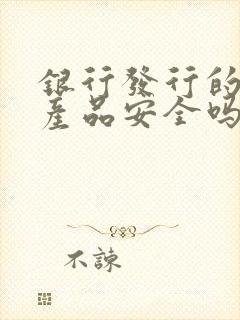 銀行發行的
產品安全嗎
不諫